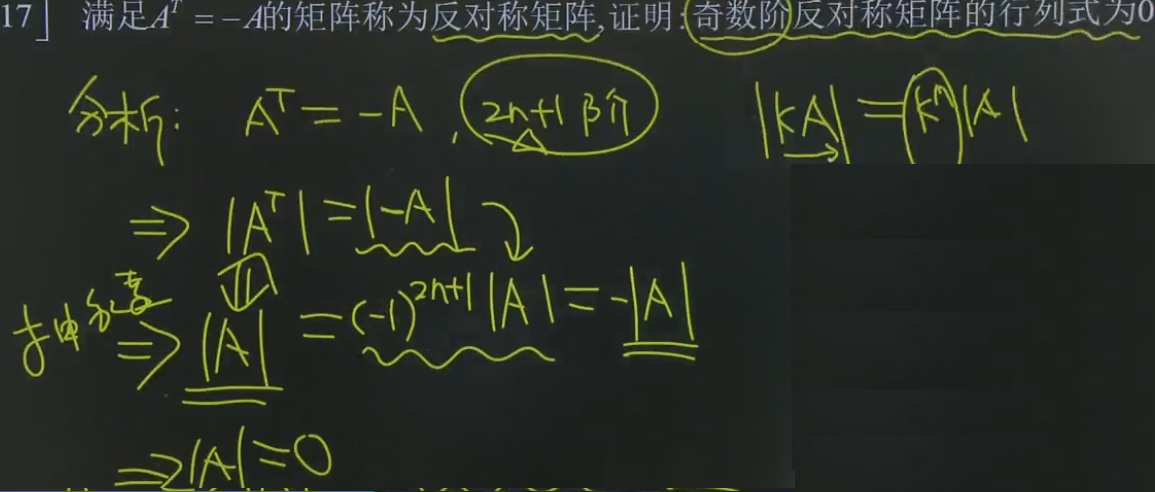 17] 满足Aᵀ = -A的矩阵称为反对称矩阵,证明:奇数阶反对称矩阵的行列式为0
分析: Aᵀ = -A, 2n+1 阶 |kA| = kⁿ|A|
⇒ |Aᵀ| = |-A|
⇒ |A| = (-1)²ⁿ⁺¹|A| = -|A|
⇒ |A| = 0